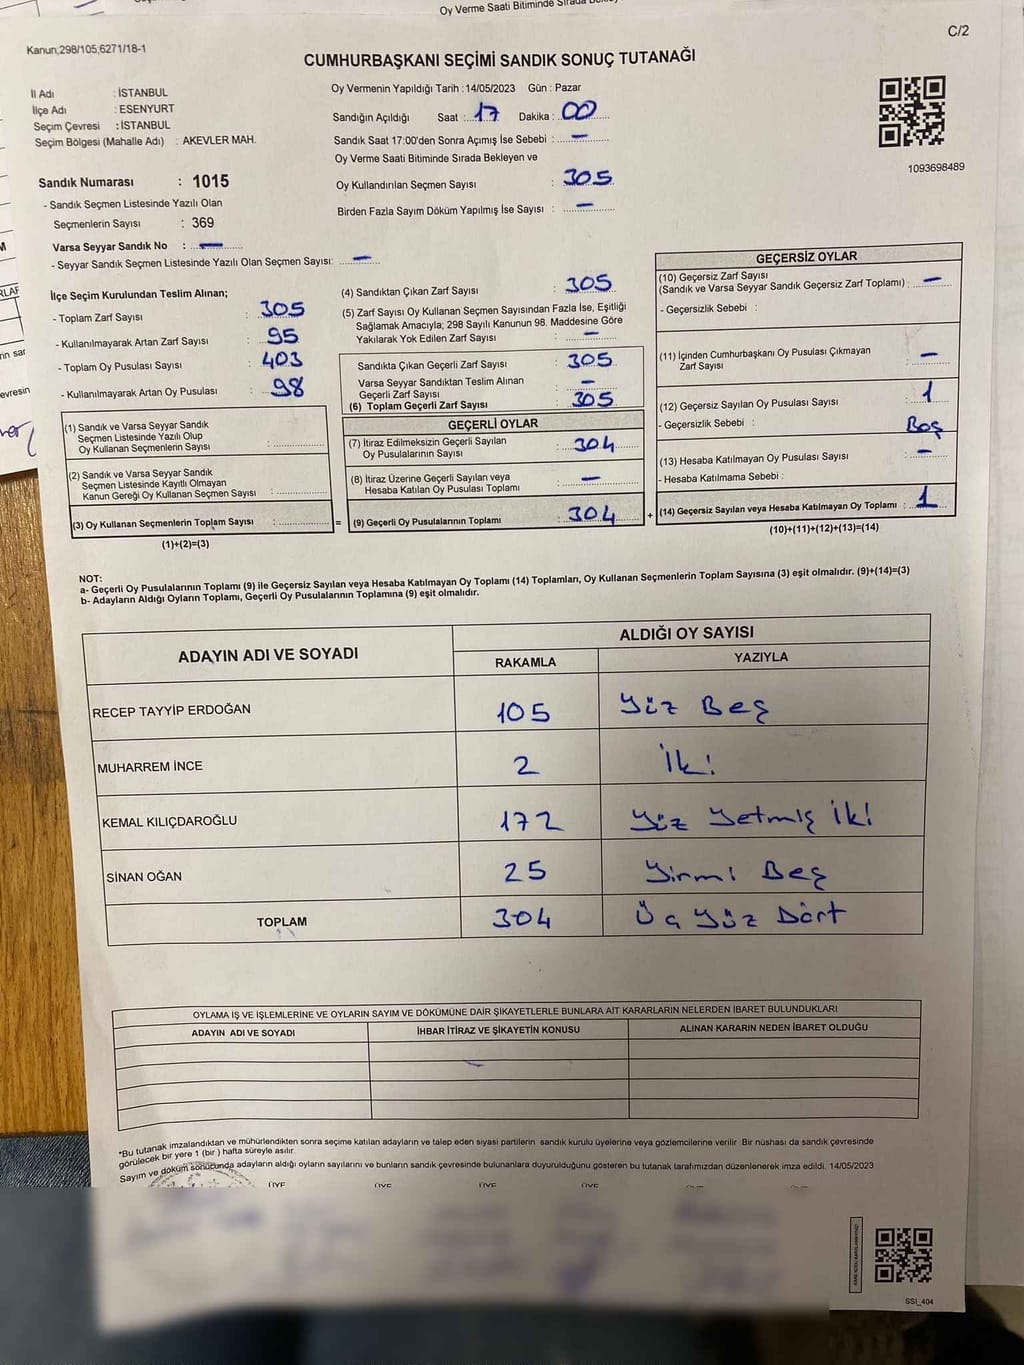 Oy Verme Saati Bitiminde Sırada
C/2
Kanun;298/105;6271/18-1
CUMHURBAŞKANI SEÇİMİ SANDIK SONUÇ TUTANAĞI
İl Adı : İSTANBUL
İlçe Adı : ESENYURT
Seçim Çevresi : İSTANBUL
Seçim Bölgesi (Mahalle Adı) : AKEVLER MAH.
Oy Vermenin Yapıldığı Tarih : 14/05/2023 Gün : Pazar
Sandığın Açıldığı Saat : 17 Dakika : 00
Sandık Saat 17:00'den Sonra Açımış İse Sebebi : —
Oy Verme Saati Bitiminde Sırada Bekleyen ve
Oy Kullandırılan Seçmen Sayısı : 305
Birden Fazla Sayım Döküm Yapılmış İse Sayısı : —
1093698489
Sandık Numarası : 1015
- Sandık Seçmen Listesinde Yazılı Olan
Seçmenlerin Sayısı : 369
Varsa Seyyar Sandık No : —
- Seyyar Sandık Seçmen Listesinde Yazılı Olan Seçmen Sayısı: —
İlçe Seçim Kurulundan Teslim Alınan;
- Toplam Zarf Sayısı : 305
- Kullanılmayarak Artan Zarf Sayısı : 95
- Toplam Oy Pusulası Sayısı : 403
- Kullanılmayarak Artan Oy Pusulası : 98
(1) Sandık ve Varsa Seyyar Sandık
Seçmen Listesinde Yazılı Olup
Oy Kullanan Seçmenlerin Sayısı :
(2) Sandık ve Varsa Seyyar Sandık
Seçmen Listesinde Kayıtlı Olmayan
Kanun Gereği Oy Kullanan Seçmen Sayısı :
(3) Oy Kullanan Seçmenlerin Toplam Sayısı :
(1)+(2)=(3)
(4) Sandıktan Çıkan Zarf Sayısı : 305
(5) Zarf Sayısı Oy Kullanan Seçmen Sayısından Fazla İse, Eşitliği
Sağlamak Amacıyla; 298 Sayılı Kanunun 98. Maddesine Göre
Yakılarak Yok Edilen Zarf Sayısı : —
Sandıkta Çıkan Geçerli Zarf Sayısı : 305
Varsa Seyyar Sandıktan Teslim Alınan
Geçerli Zarf Sayısı : —
(6) Toplam Geçerli Zarf Sayısı : 305
GEÇERLİ OYLAR
(7) İtiraz Edilmeksizin Geçerli Sayılan
Oy Pusulalarının Sayısı : 304
(8) İtiraz Üzerine Geçerli Sayılan veya
Hesaba Katılan Oy Pusulası Toplamı : —
= (9) Geçerli Oy Pusulalarının Toplamı : 304
GEÇERSİZ OYLAR
(10) Geçersiz Zarf Sayısı
(Sandık ve Varsa Seyyar Sandık Geçersiz Zarf Toplamı) : —
- Geçersizlik Sebebi :
(11) İçinden Cumhurbaşkanı Oy Pusulası Çıkmayan
Zarf Sayısı : —
(12) Geçersiz Sayılan Oy Pusulası Sayısı : 1
- Geçersizlik Sebebi : Boş
(13) Hesaba Katılmayan Oy Pusulası Sayısı : —
- Hesaba Katılmama Sebebi :
+ (14) Geçersiz Sayılan veya Hesaba Katılmayan Oy Toplamı : 1
(10)+(11)+(12)+(13)=(14)
NOT:
a- Geçerli Oy Pusulalarının Toplamı (9) ile Geçersiz Sayılan veya Hesaba Katılmayan Oy Toplamı (14) Toplamları, Oy Kullanan Seçmenlerin Toplam Sayısına (3) eşit olmalıdır. (9)+(14)=(3)
b- Adayların Aldığı Oyların Toplamı, Geçerli Oy Pusulalarının Toplamına (9) eşit olmalıdır.
ADAYIN ADI VE SOYADI
ALDIĞI OY SAYISI
RAKAMLA YAZIYLA
RECEP TAYYİP ERDOĞAN 105 Yüz Beş
MUHARREM İNCE 2 İki
KEMAL KILIÇDAROĞLU 172 Yüz Yetmiş İki
SİNAN OĞAN 25 Yirmi Beş
TOPLAM 304 Üç Yüz Dört
OYLAMA İŞ VE İŞLEMLERİNE VE OYLARIN SAYIM VE DÖKÜMÜNE DAİR ŞİKAYETLERLE BUNLARA AİT KARARLARIN NELERDEN İBARET BULUNDUKLARI
ADAYIN ADI VE SOYADI İHBAR İTİRAZ VE ŞİKAYETİN KONUSU ALINAN KARARIN NEDEN İBARET OLDUĞU
*Bu tutanak imzalandıktan ve mühürlendikten sonra seçime katılan adayların ve talep eden siyasi partilerin sandık kurulu üyelerine veya gözlemcilerine verilir. Bir nüshası da sandık çevresinde
görülecek bir yere 1 (bir) hafta süreyle asılır.
Sayım ve döküm sonucunda adayların aldığı oyların sayılarını ve bunların sandık çevresinde bulunanlara duyurulduğunu gösteren bu tutanak tarafımızdan düzenlenerek imza edildi. 14/05/2023
ÜYE ÜYE ÜYE ÜYE
SSI_404